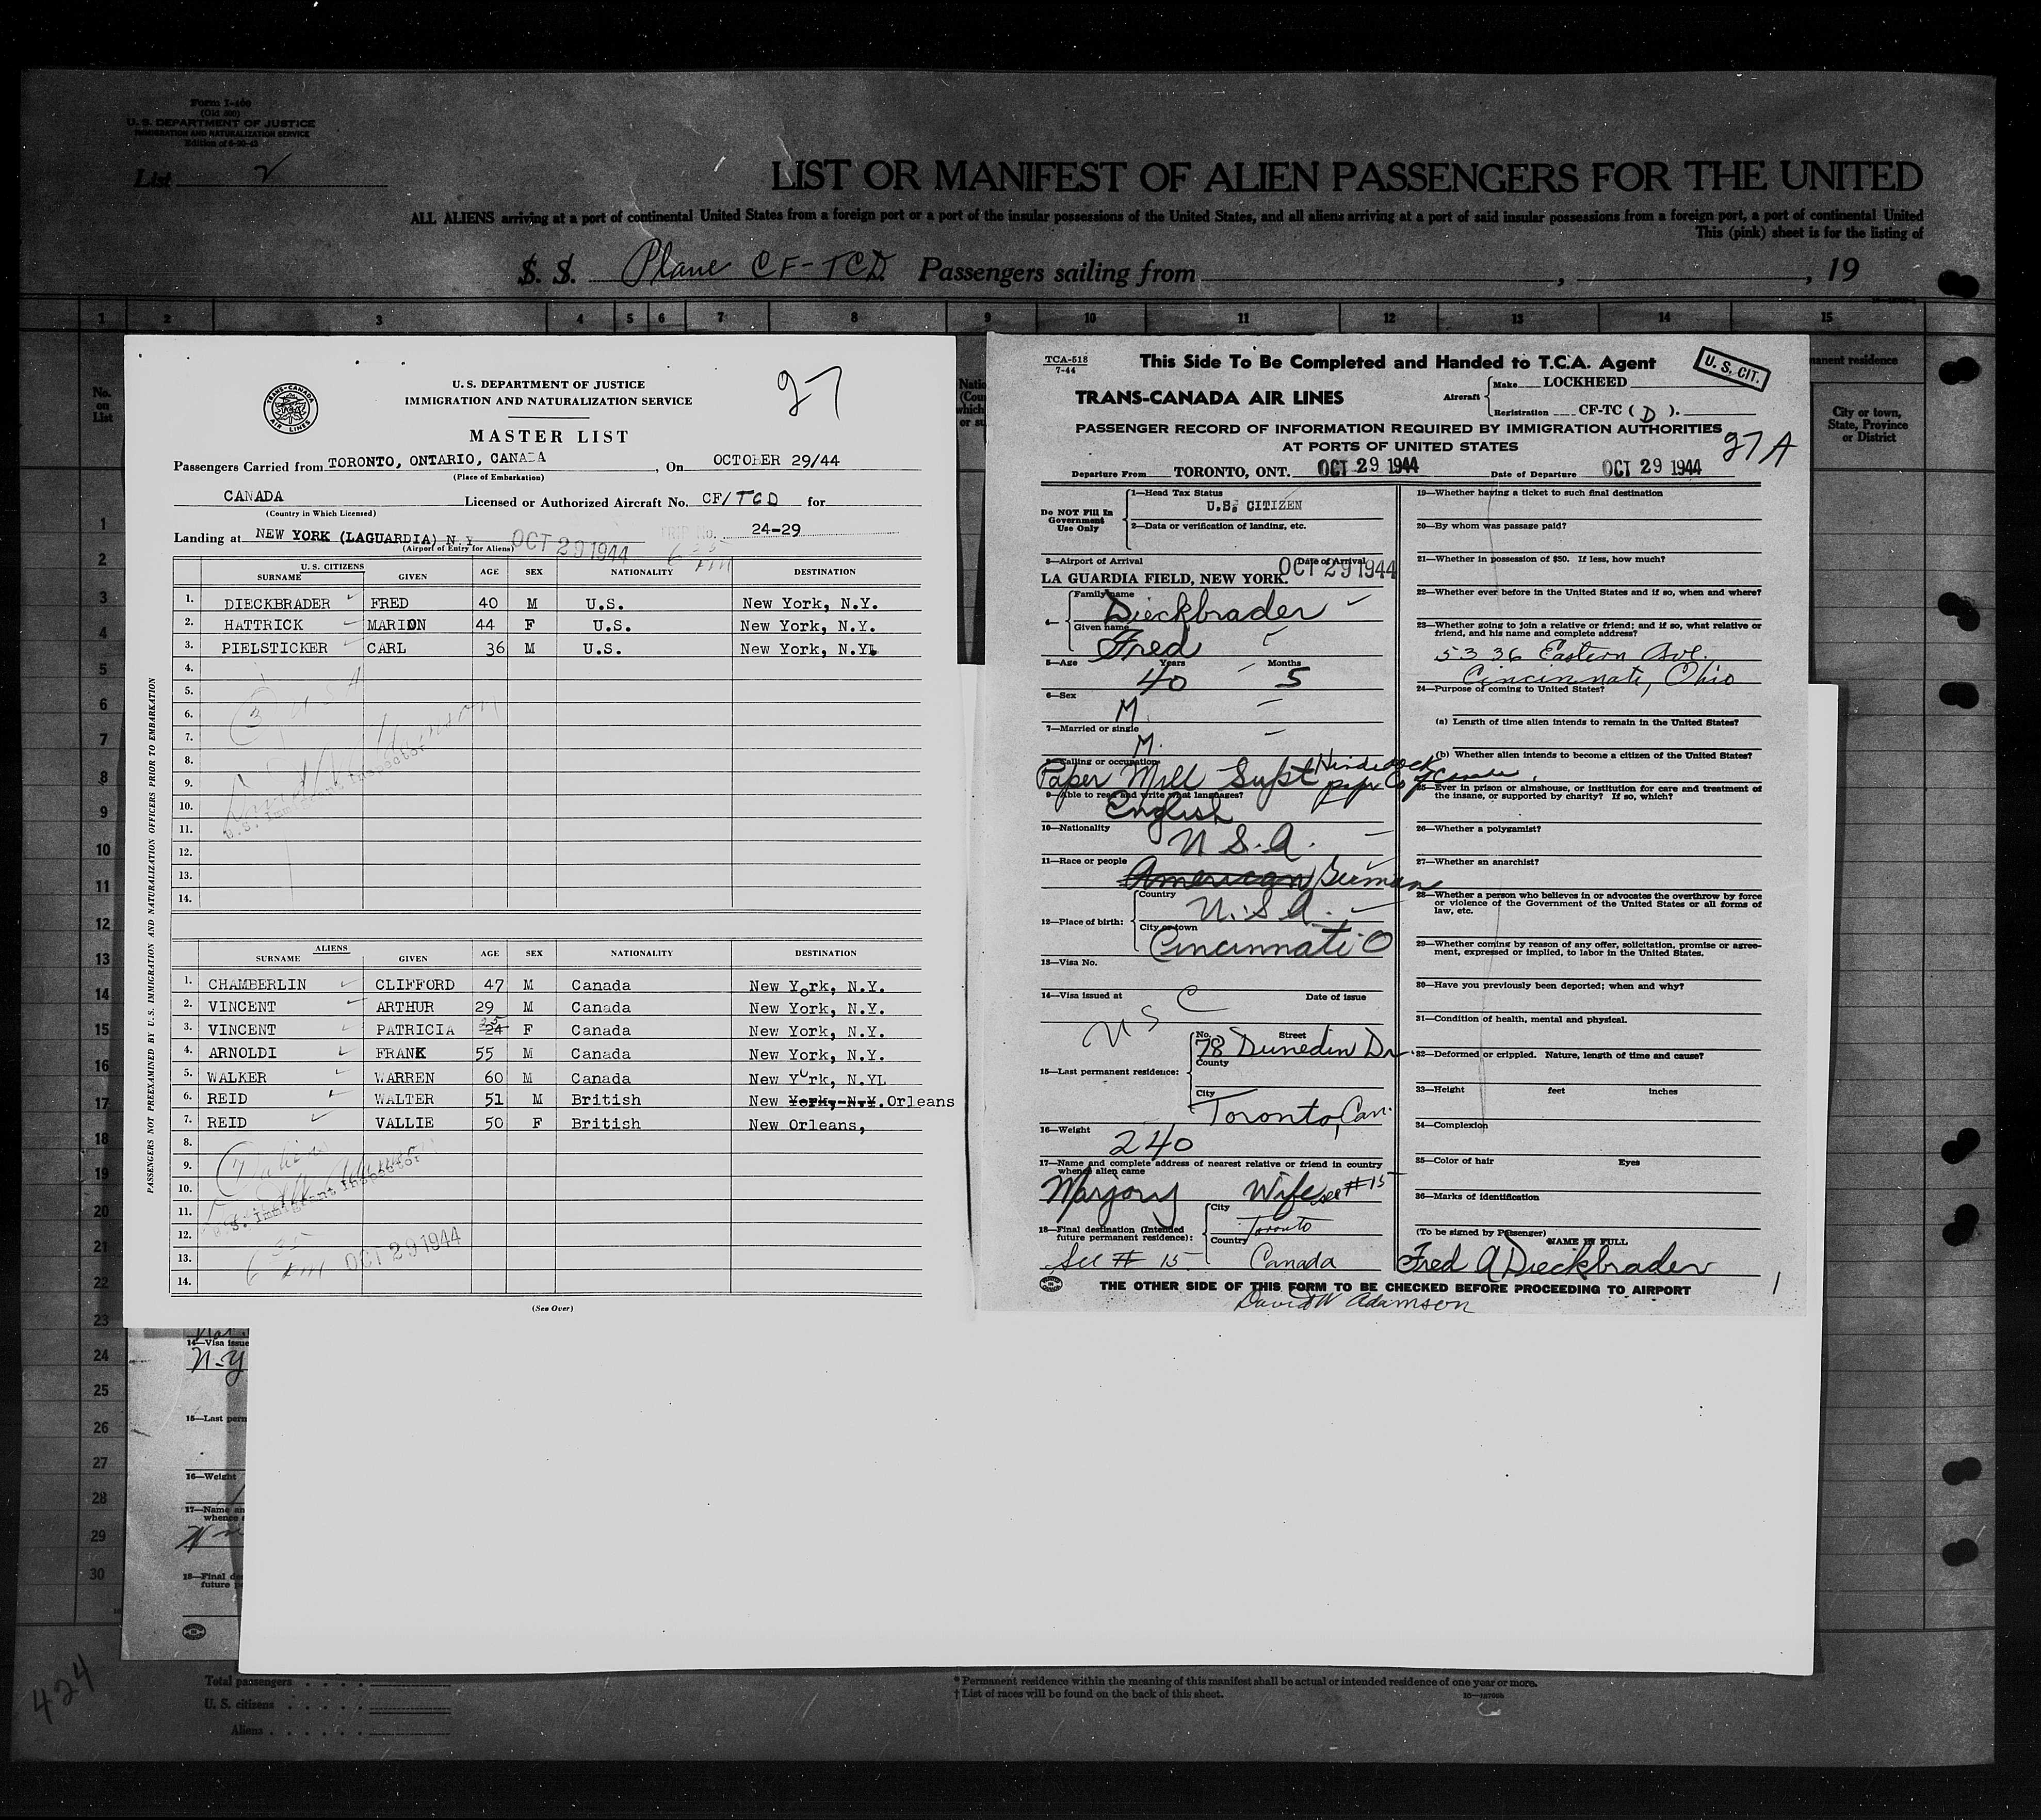 Form I-460
(Old 500)
U. S. DEPARTMENT OF JUSTICE
IMMIGRATION AND NATURALIZATION SERVICE
Edition of 6-20-43
List 2
LIST OR MANIFEST OF ALIEN PASSENGERS FOR THE UNITED
ALL ALIENS arriving at a port of continental United States from a foreign port or a port of the insular possessions of the United States, and all aliens arriving at a port of said insular possessions from a foreign port, a port of continental United
This (pink) sheet is for the listing of
S. S. Plane CF-TCD Passengers sailing from , , 19
1 2 3 4 5 6 7 8 9 10 11 12 13 14 15
No. on List
manent residence
City or town, State, Province or District
1
2
3
4
5
6
7
8
9
10
11
12
13
14
15
16
17
18
19
20
21
22
23
24
25
26
27
28
29
30
TRANS-CANADA AIR LINES
U.S. DEPARTMENT OF JUSTICE
IMMIGRATION AND NATURALIZATION SERVICE
27
MASTER LIST
Passengers Carried from TORONTO, ONTARIO, CANADA, On OCTOBER 29/44
(Place of Embarkation)
CANADA Licensed or Authorized Aircraft No. CF/TCD for
(Country in Which Licensed)
Landing at NEW YORK (LAGUARDIA) N.Y. OCT 29 1944 TRIP No. 24-29
(Airport of Entry for Aliens)
PASSENGERS NOT PREEXAMINED BY U.S. IMMIGRATION AND NATURALIZATION OFFICERS PRIOR TO EMBARKATION
U.S. CITIZENS
SURNAME GIVEN AGE SEX NATIONALITY DESTINATION
1. DIECKBRADER FRED 40 M U.S. New York, N.Y.
2. HATTRICK MARION 44 F U.S. New York, N.Y.
3. PIELSTICKER CARL 36 M U.S. New York, N.YL
4.
5.
6.
7.
8.
9.
10.
11.
12.
13.
14.
3 USA
U.S. Immigrant Inspector
ALIENS
SURNAME GIVEN AGE SEX NATIONALITY DESTINATION
1. CHAMBERLIN CLIFFORD 47 M Canada New York, N.Y.
2. VINCENT ARTHUR 29 M Canada New York, N.Y.
3. VINCENT PATRICIA 24 25 F Canada New York, N.Y.
4. ARNOLDI FRANK 55 M Canada New York, N.Y.
5. WALKER WARREN 60 M Canada New York, N.YL
6. REID WALTER 51 M British New York, N.Y.Orleans
7. REID VALLIE 50 F British New Orleans,
8.
9.
10.
11.
12.
13.
14.
7 Aliens
U.S. Immigrant Inspector
OCT 29 1944
(See Over)
TCA-518
7-44
This Side To Be Completed and Handed to T.C.A. Agent
U. S. CIT.
TRANS-CANADA AIR LINES
Aircraft Make LOCKHEED
Registration CF-TC (D).
PASSENGER RECORD OF INFORMATION REQUIRED BY IMMIGRATION AUTHORITIES
AT PORTS OF UNITED STATES
27A
Departure From TORONTO, ONT. OCT 29 1944 Date of Departure OCT 29 1944
Do NOT Fill In Government Use Only
1—Head Tax Status
U.S. CITIZEN
2—Data or verification of landing, etc.
3—Airport of Arrival Date of Arrival
LA GUARDIA FIELD, NEW YORK. OCT 29 1944
4— Family name Dieckbrader
Given name Fred
5—Age Years Months
40 5
6—Sex
M.
7—Married or single
M.
8—Calling or occupation
Paper Mill Supt Hinde Dock Paper Co of Canada.
9—Able to read and write what languages?
English
10—Nationality
U.S.A.
11—Race or people
American German
12—Place of birth: Country U.S.A.
City or town Cincinnati O
13—Visa No.
14—Visa issued at Date of issue
U S C
15—Last permanent residence: No. Street
78 Dunedin Dr.
County
City
Toronto, Can.
16—Weight
240
17—Name and complete address of nearest relative or friend in country whence alien came
Marjory Wife see #15
18—Final destination (Intended future permanent residence): City Toronto
Country
See # 15 Canada
19—Whether having a ticket to such final destination
20—By whom was passage paid?
21—Whether in possession of $50. If less, how much?
22—Whether ever before in the United States and if so, when and where?
23—Whether going to join a relative or friend; and if so, what relative or friend, and his name and complete address?
5336 Eastern Ave.
Cincinnati, Ohio
24—Purpose of coming to United States?
(a) Length of time alien intends to remain in the United States?
(b) Whether alien intends to become a citizen of the United States?
25—Ever in prison or almshouse, or institution for care and treatment of the insane, or supported by charity? If so, which?
26—Whether a polygamist?
27—Whether an anarchist?
28—Whether a person who believes in or advocates the overthrow by force or violence of the Government of the United States or all forms of law, etc.
29—Whether coming by reason of any offer, solicitation, promise or agreement, expressed or implied, to labor in the United States.
30—Have you previously been deported; when and why?
31—Condition of health, mental and physical.
32—Deformed or crippled. Nature, length of time and cause?
33—Height feet inches
34—Complexion
35—Color of hair Eyes
36—Marks of identification
(To be signed by Passenger)
NAME IN FULL
Fred A Dieckbrader
THE OTHER SIDE OF THIS FORM TO BE CHECKED BEFORE PROCEEDING TO AIRPORT
1
David W Adamson
14—Visa issue
N-Y
15—Last perm
16—Weight
17—Name an
whence
18—Final de
future
424
Total passengers
U. S. citizens
Aliens
*Permanent residence within the meaning of this manifest shall be actual or intended residence of one year or more.
†List of races will be found on the back of this sheet.